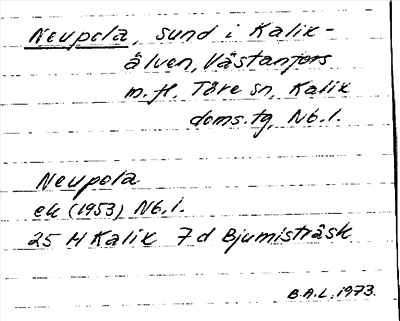 Neupola, sund i Kalix-
älven, Västanfors
m.fl. Töre sn, Kalix
doms.tg, Nb.l.
Neupola
ek (1953) Nb.l.
25 M Kalix 7d Bjumisträsk
B.A.L. 1973.